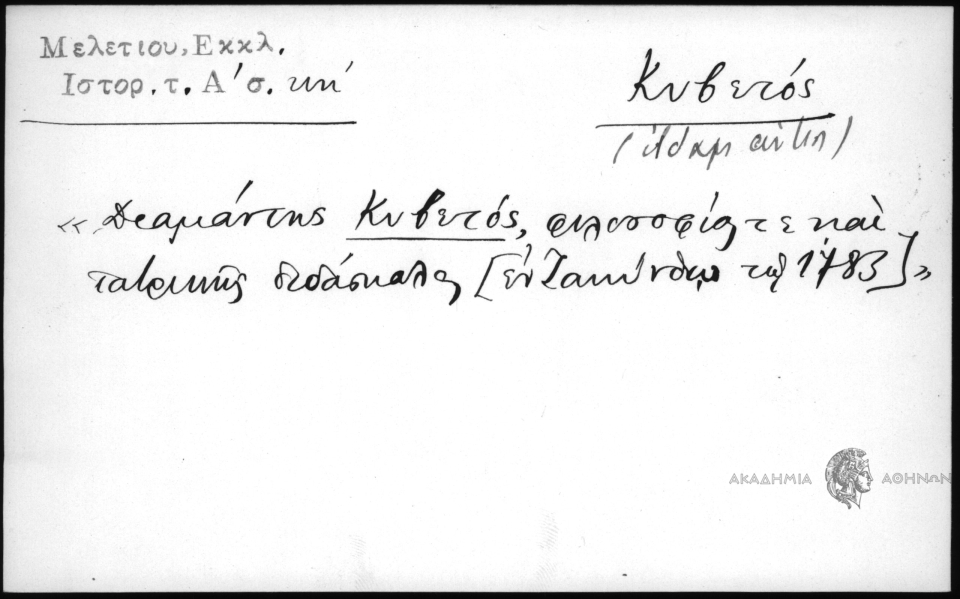 Μελετιου, Εκκλ.
Ιστορ. τ. Α' σ. κη'
Κυβετός
« Διαμάντης Κυβετός, φιλοσοφίας τε καὶ
ἰατρικῆς διδάσκαλος [ἐν Ζακύνθῳ τῷ 1783] »
ΑΚΑΔΗΜΙΑ ΑΘΗΝΩΝ